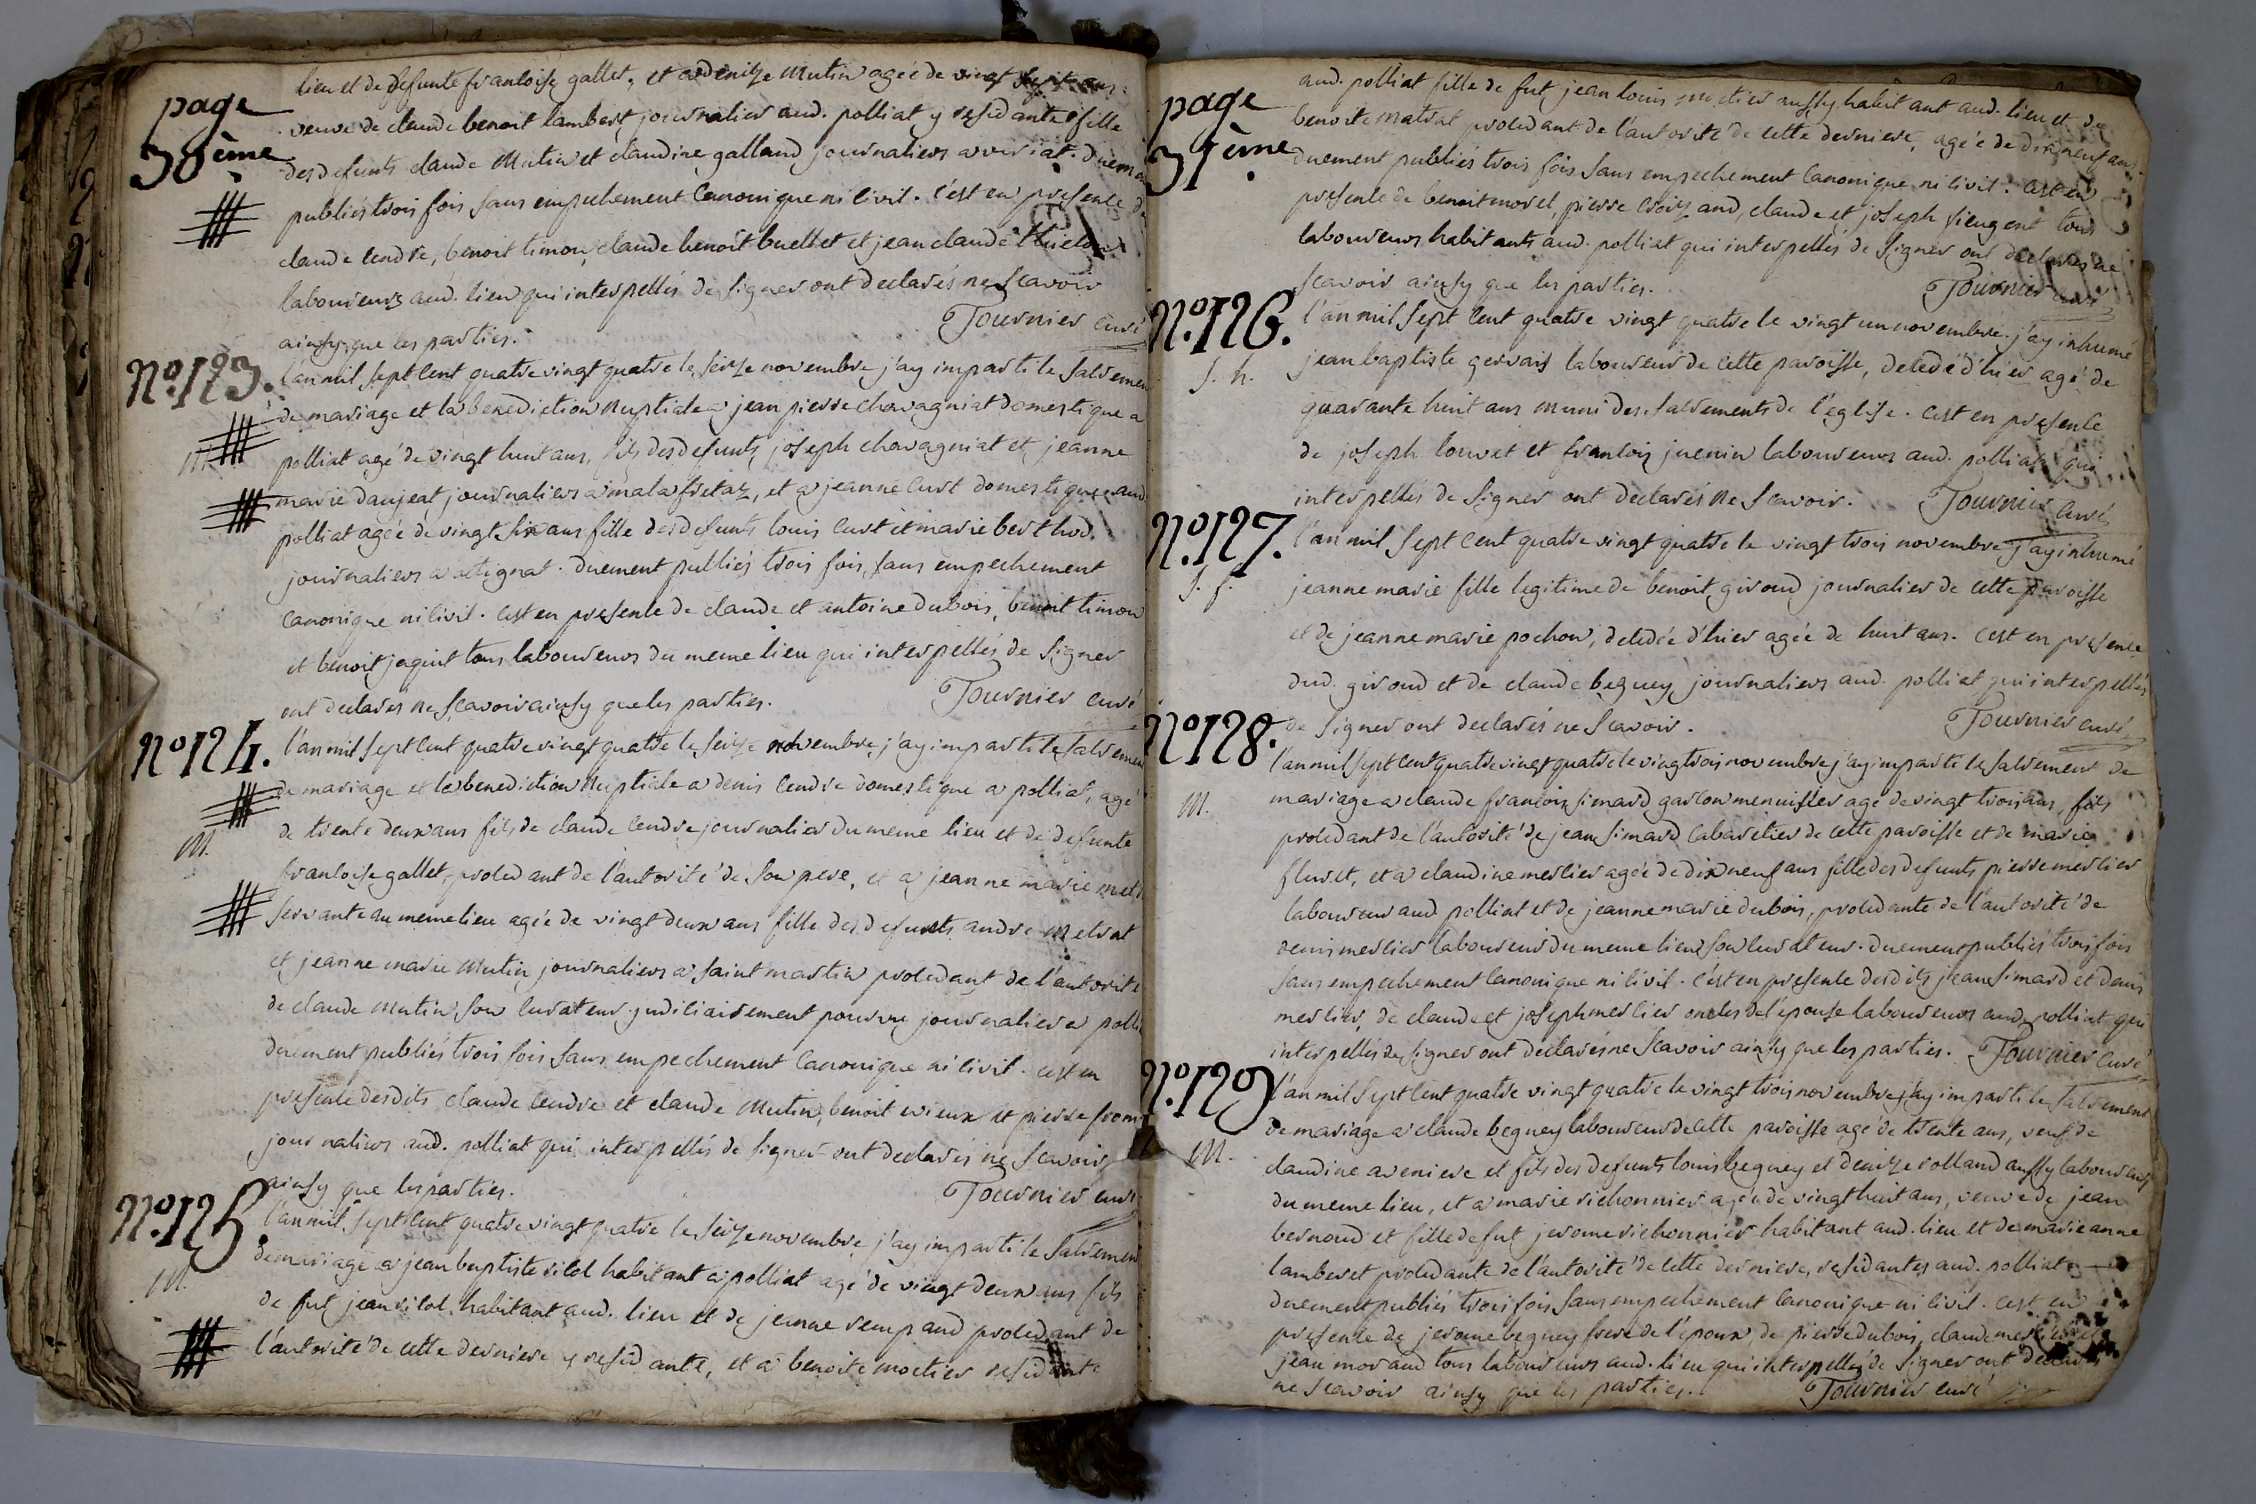 page
38ème
lieu et de defunte francoise gallet, et a denise Mutin agée de vingt sept ans
veuve de claude benoit lambert journalier aud. polliat y residante fille
des defunts claude Mutin et claudine galland journaliers a viriat. duement
publiés trois fois sans empechement canonique ni civil. c'est en presence de
claude cendre, benoit timon, claude benoit buellet et jean claude
laboureurs aud. lieu qui interpellés de signer ont declarés ne scavoir
ainsy que les parties. Tournier curé
No. 123.
M.
l'an mil sept cent quatre vingt quatre le seize novembre j'ay imparti le sacrement
de mariage et la benediction Nuptiale a jean pierre chavagniat domestique a
polliat agé de vingt huit ans, fils des defunts joseph chavagniat et jeanne
marie daujeat journaliers a malafretaz, et a jeanne curt domestique aud.
polliat agée de vingt six ans fille des defunts louis curt et marie berthod
journaliers a attignat. duement publiés trois fois, sans empechement
canonique ni civil. c'est en presence de claude et antoine dubois, benoit timon
et benoit jaquit tous laboureurs du meme lieu qui interpellés de signer
ont declarés ne scavoir ainsy que les parties. Tournier curé
No 124.
M.
l'an mil sept cent quatre vingt quatre le seize novembre, j'ay imparti le sacrement
de mariage et la benediction Nuptiale a denis cendre domestique a polliat, agé
de trente deux ans fils de claude cendre journalier du meme lieu et de defunte
francoise gallet, procedant de l'autorité de son pere, et a jeanne marie
servante au meme lieu agée de vingt deux ans fille des defunts andre
et jeanne marie Mutin journaliers a saint martin procedant de l'autorité
de claude Mutin son curateur judiciairement pourvu journalier a polliat
duement publiés trois fois sans empechement canonique ni civil. c'est en
presence desdits claude cendre et claude Mutin, benoit vieux et pierre
journaliers aud. polliat qui interpellés de signer ont declarés ne scavoir
ainsy que les parties. Tournier curé
No. 125
M.
l'an mil sept cent quatre vingt quatre le seize novembre j'ay imparti le sacrement
de mariage a jean baptiste habitant a polliat agé de vingt deux ans fils
de fut jean habitant aud. lieu et de jeanne rempand procedant de
l'autorité de cette derniere y residante, et a benoite moctier residante
page
39ème
aud. polliat fille de fut jean louis moctier aussy habitant aud. lieu et de
benoite matrat procedant de l'autorité de cette derniere, agée de dix neuf ans.
duement publiés trois fois sans empechement canonique ni civil. c'est en
presence de benoit morel, pierre claude et joseph fiengent tous
laboureurs habitants aud. polliat qui interpellés de signer ont declarés ne
scavoir ainsy que les parties. Tournier curé
No. 126.
S. h.
l'an mil sept cent quatre vingt quatre le vingt un novembre. j'ay inhumé
jean baptiste gervais laboureur de cette paroisse, decedé d'hier agé de
quarante huit ans muni des sacrements de l'église. c'est en presence
de joseph louvet et francois juenin laboureurs aud. polliat qui
interpellés de signer ont declarés ne scavoir. Tournier curé
No. 127.
S. f.
l'an mil sept cent quatre vingt quatre le vingt trois novembre j'ay inhumé
jeanne marie fille legitime de benoit giroud journalier de cette paroisse
et de jeanne marie pochon, decedée d'hier agée de huit ans. c'est en presence
dud. giroud et de claude beguey journaliers aud. polliat qui interpellés
de signer ont declarés ne scavoir. Tournier curé
No 128.
M.
l'an mil sept cent quatre vingt quatre le vingt trois novembre j'ay imparti le sacrement de
mariage a claude francois simard garcon menuisier agé de vingt trois ans, fils
procedant de l'autorité de jean simard cabaretier de cette paroisse et de marie
fluret, et a claudine merlier agée de dix neuf ans fille des defunts pierre merlier
laboureur aud. polliat et de jeanne marie dubois, procedante de l'autorité de
denis merlier laboureur du meme lieu son curateur. duement publiés trois fois
sans empechement canonique ni civil. c'est en presence desdits jean simard et denis
merlier, de claude et joseph merlier oncles de l'épouse laboureurs aud. polliat qui
interpellés de signer ont declarés ne scavoir ainsy que les parties. Tournier curé
No. 129
M.
l'an mil sept cent quatre vingt quatre le vingt trois novembre j'ay imparti le sacrement
de mariage a claude beguey laboureur de cette paroisse agé de trente ans, veuf de
claudine aveniere et fils des defunts louis beguey et denise rolland aussy laboureurs
du meme lieu, et a marie richonnier agée de vingt huit ans, veuve de jean
bernoud et fille de fut jerome richonnier habitant aud. lieu et de marie anne
lamberet procedante de l'autorité de cette derniere, residantes aud. polliat
duement publiés trois fois sans empechement canonique ni civil. c'est en
presence de jerome beguey frere de l'époux, de pierre dubois, claude merlier et
jean moraud tous laboureurs aud. lieu qui interpellés de signer ont declarés
ne scavoir ainsy que les parties. Tournier curé